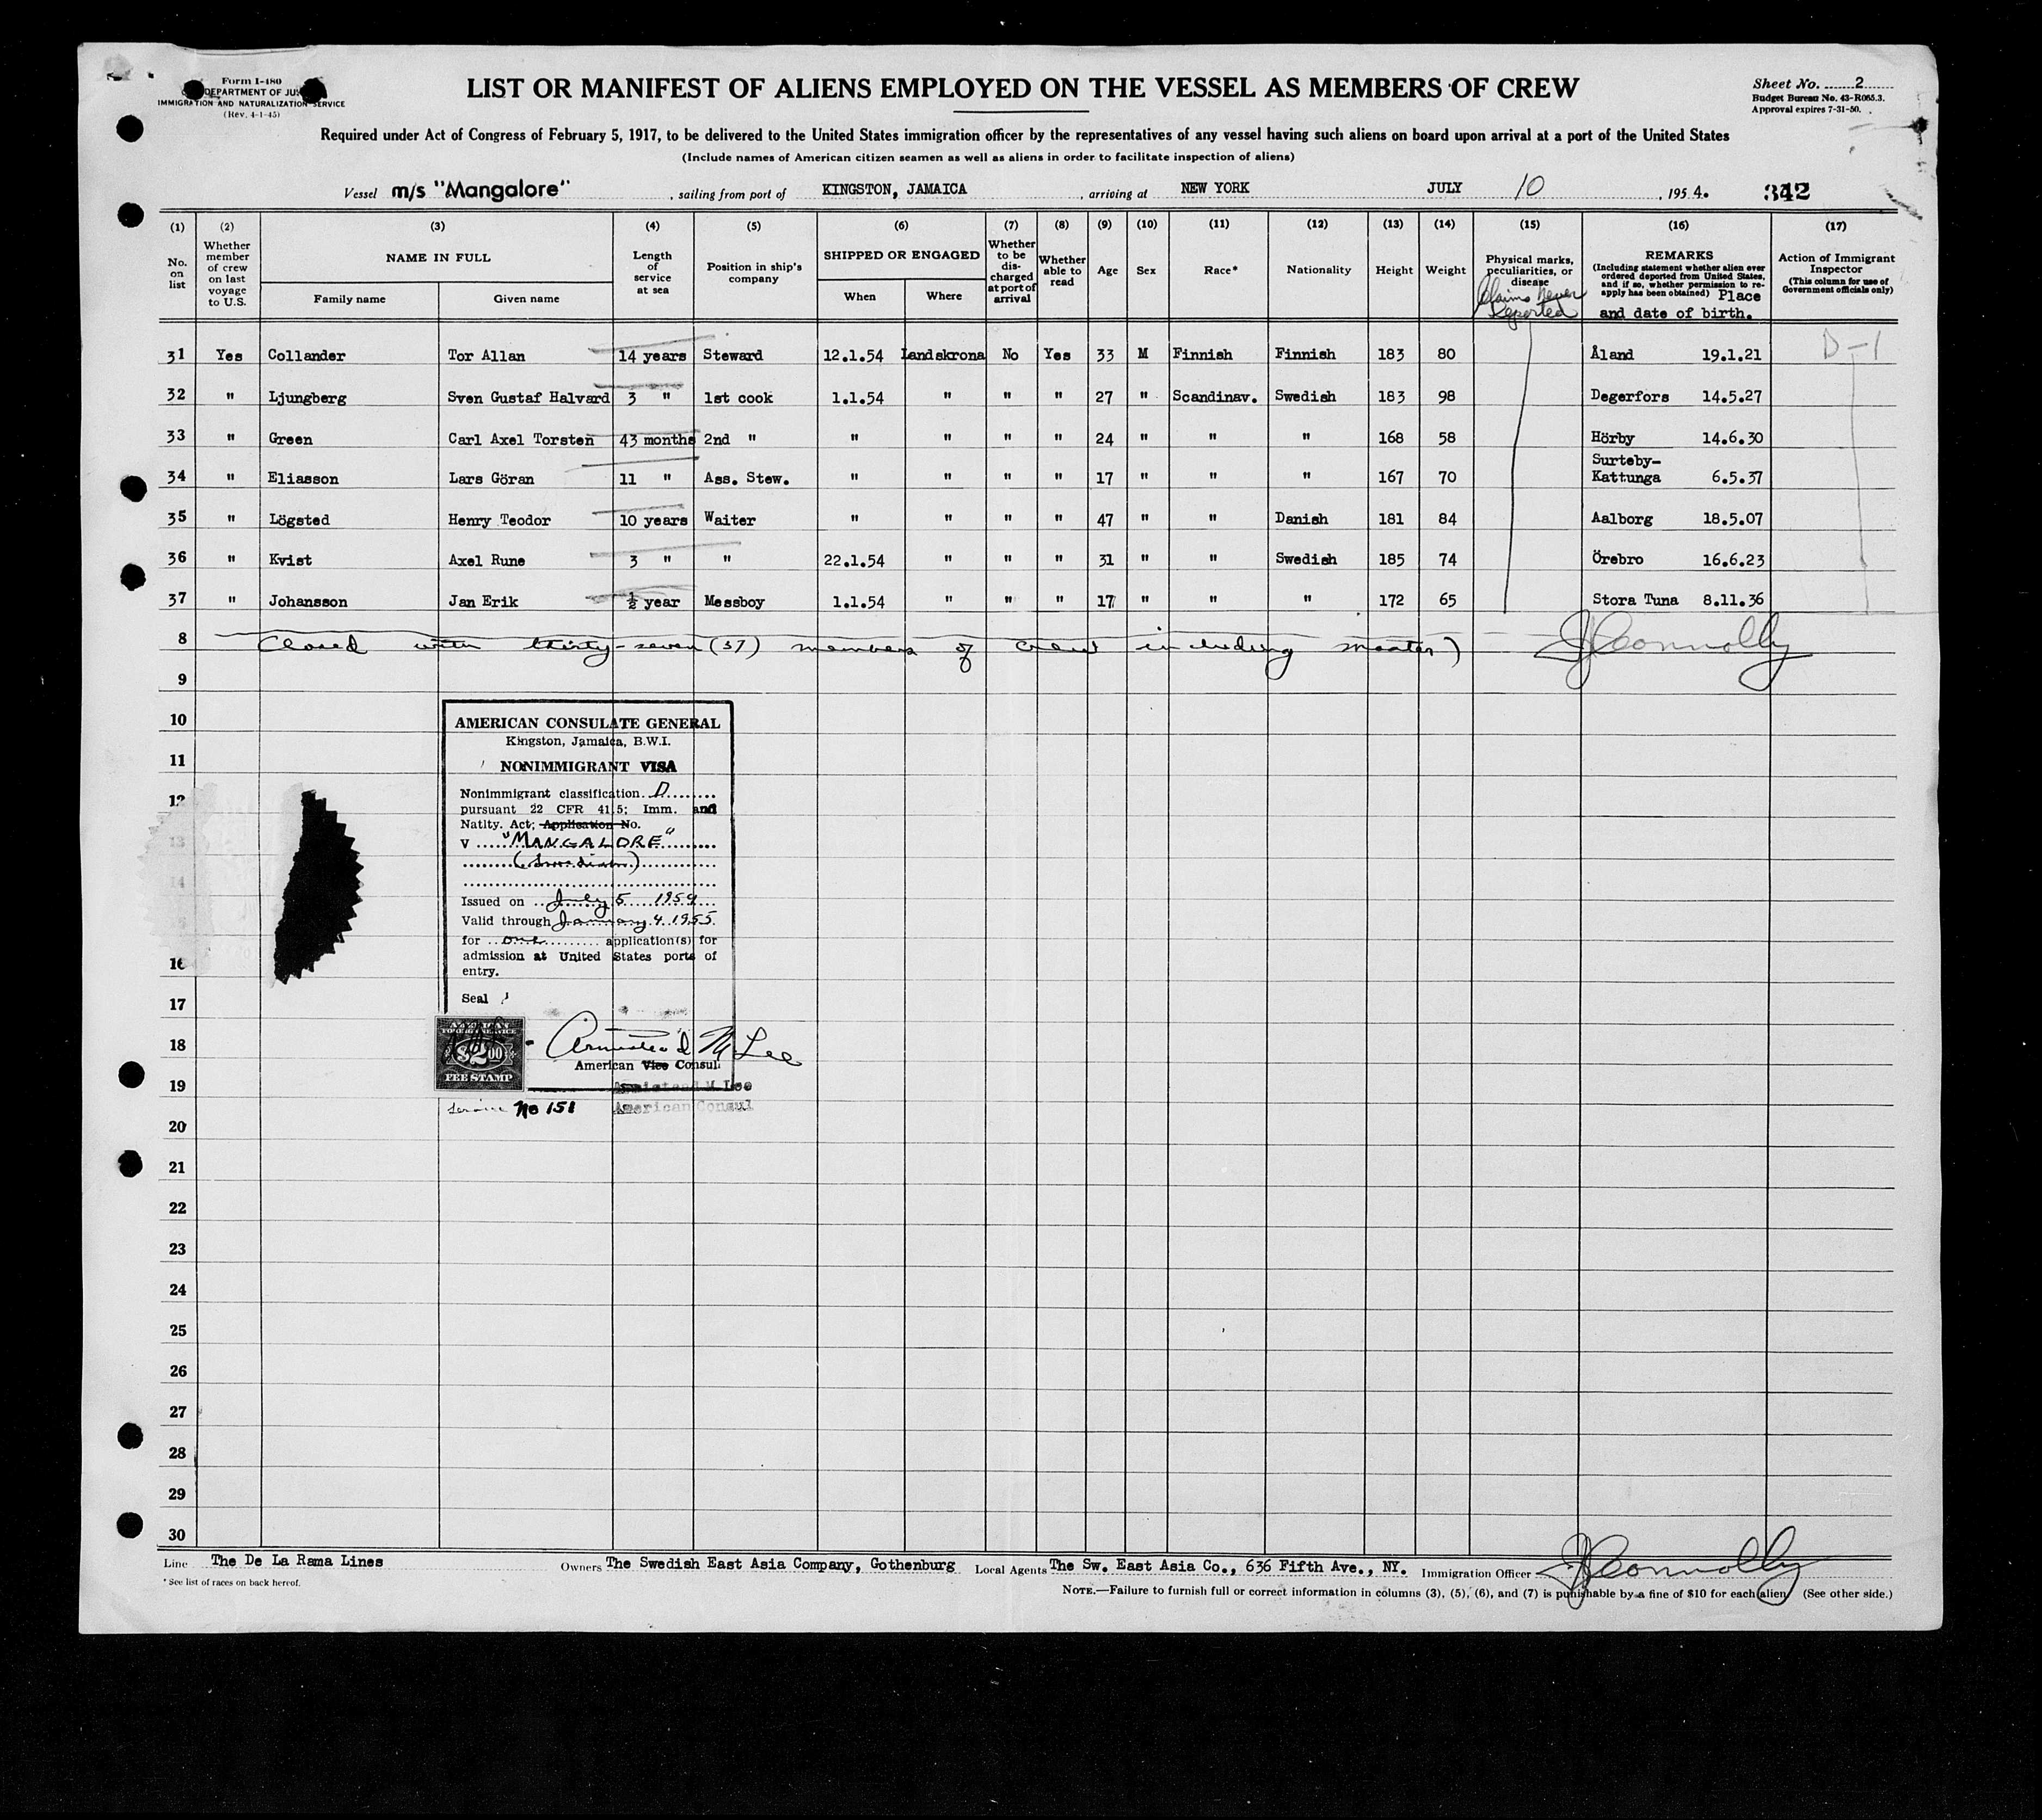 Form I-480
DEPARTMENT OF
IMMIGRATION AND NATURALIZATION SERVICE
(Rev. 4-1-45)
LIST OR MANIFEST OF ALIENS EMPLOYED ON THE VESSEL AS MEMBERS OF CREW
Sheet No. 2
Budget Bureau No. 43-R065.3.
Approval expires 7-31-50.
Required under Act of Congress of February 5, 1917, to be delivered to the United States immigration officer by the representatives of any vessel having such aliens on board upon arrival at a port of the United States
(Include names of American citizen seamen as well as aliens in order to facilitate inspection of aliens)
Vessel m/s "Mangalore", sailing from port of KINGSTON, JAMAICA, arriving at NEW YORK JULY 10, 1954. 342
(1) (2) (3) (4) (5) (6) (7) (8) (9) (10) (11) (12) (13) (14) (15) (16) (17)
No. on list
Whether member of crew on last voyage to U.S.
NAME IN FULL
Family name Given name
Length of service at sea
Position in ship's company
SHIPPED OR ENGAGED
When Where
Whether to be discharged at port of arrival
Whether able to read
Age Sex Race* Nationality Height Weight
Physical marks, peculiarities, or disease
Claims Never Deported
REMARKS
(Including statement whether alien ever ordered deported from United States, and if so, whether permission to re-apply has been obtained) Place
and date of birth.
Action of Immigrant Inspector
(This column for use of Government officials only)
31 Yes Collander Tor Allan 14 years Steward 12.1.54 Landskrona No Yes 33 M Finnish Finnish 183 80 Åland 19.1.21 D-1
32 " Ljungberg Sven Gustaf Halvard 3 " 1st cook 1.1.54 " " " 27 " Scandinav. Swedish 183 98 Degerfors 14.5.27
33 " Green Carl Axel Torsten 43 months 2nd " " " " " 24 " " " 168 58 Hörby 14.6.30
34 " Eliasson Lars Göran 11 " Ass. Stew. " " " " 17 " " " 167 70 Surteby-Kattunga 6.5.37
35 " Lögsted Henry Teodor 10 years Waiter " " " " 47 " " Danish 181 84 Aalborg 18.5.07
36 " Kvist Axel Rune 3 " " 22.1.54 " " " 31 " " Swedish 185 74 Örebro 16.6.23
37 " Johansson Jan Erik ½ year Messboy 1.1.54 " " " 17 " " " 172 65 Stora Tuna 8.11.36
8 Closed with thirty-seven (37) members of crew including master) J Connolly
9
10
11
12
13
14
16
17
18
19
20
21
22
23
24
25
26
27
28
29
30
AMERICAN CONSULATE GENERAL
Kingston, Jamaica, B.W.I.
NONIMMIGRANT VISA
Nonimmigrant classification D
pursuant 22 CFR 41.5; Imm. and
Natity. Act; Application No.
V "MANGALORE"
(Swedish)
Issued on July 5 1954
Valid through January 4 1955
for one application(s) for
admission at United States ports of
entry.
Seal
AMERICAN
FOREIGN SERVICE
$2.00
FEE STAMP
Armistead M Lee
American Vice Consul
Armistead M. Lee
American Consul
Service No 151
Line The De La Rama Lines Owners The Swedish East Asia Company, Gothenburg Local Agents The Sw. East Asia Co., 636 Fifth Ave., NY. Immigration Officer J Connolly
* See list of races on back hereof.
NOTE.—Failure to furnish full or correct information in columns (3), (5), (6), and (7) is punishable by a fine of $10 for each alien (See other side.)